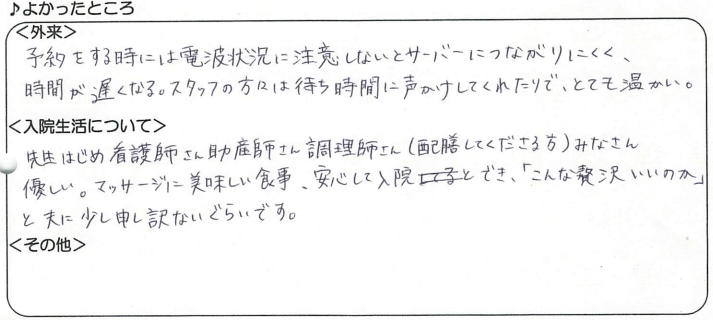 ♪よかったところ
<外来>
予約をする時には電波状況に注意しないとサーバーにつながりにくく、
時間が遅くなる。スタッフの方々は待ち時間に声かけしてくれたりで、とても温かい。
<入院生活について>
先生はじめ看護師さん助産師さん調理師さん(配膳してくださる方)みなさん
優しい。マッサージに美味しい食事、安心して入院とでき、「こんな贅沢いいのか」
と夫に少し申し訳ないぐらいです。
<その他>